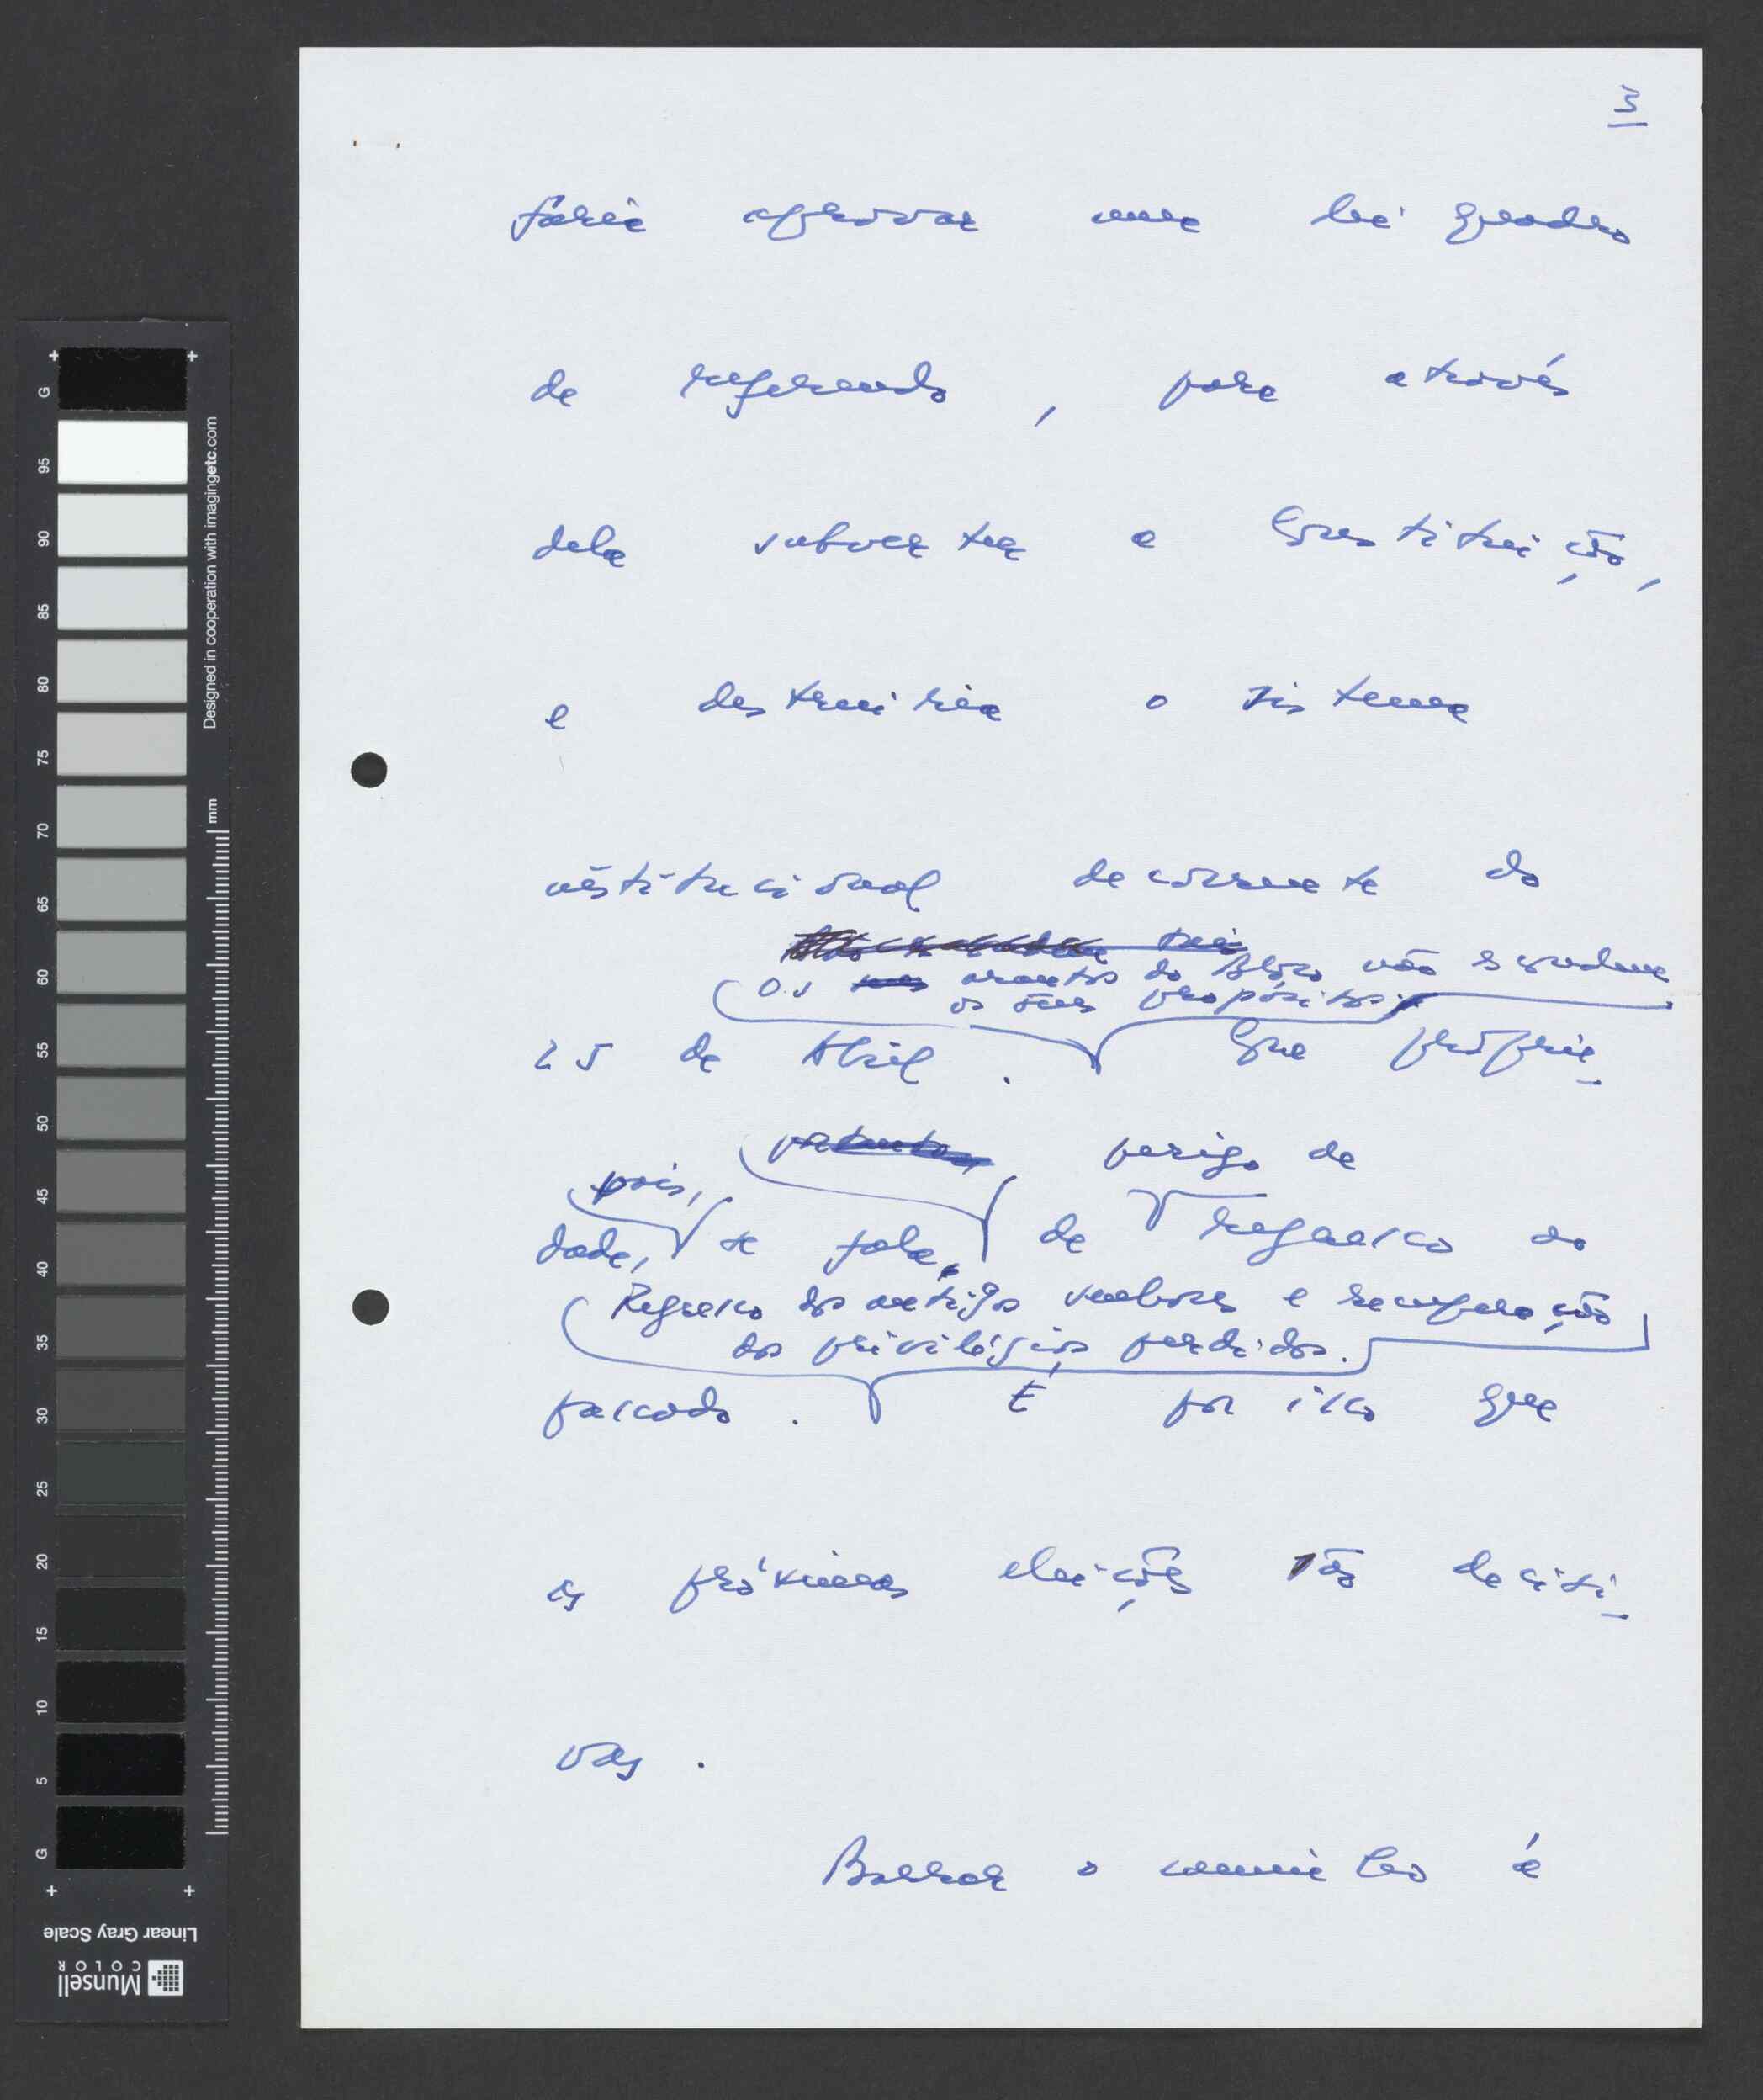 3
faria aprovar uma lei quadro
de referendo, para através
dela subverter a Constituição,
e destruiria o sistema
institucional decorrente do
Os arautos do Bloco não escondem
os seus propósitos.
25 de Abril. Com proprie-
perigo de
pois,
dade, se fala, de regresso ao
Regresso dos antigos senhores e recuperação
dos privilégios perdidos.
passado. É por isso que
as próximas eleições são decisi-
vas.
Barrar o caminho à
G
95
90
85
80
75
70
65
60
55
50
45
40
35
30
25
20
15
10
5
G
mm
Designed in cooperation with imagingetc.com
Linear Gray Scale
Munsell
COLOR